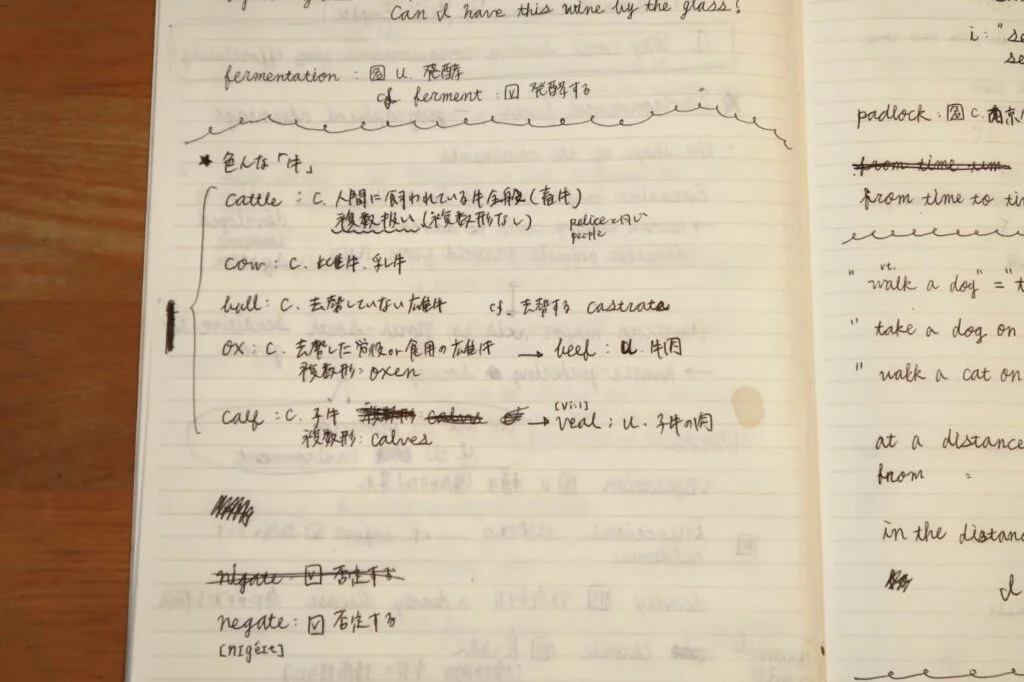 Can I have this wine by the glass?
fermentation : 名 U. 発酵
cf. ferment : V 発酵する
★ 色んな「牛」
cattle : C. 人間に飼われている牛全般(畜牛)
複数扱い(複数形なし) police と同じ
people
cow : C. 雌牛、乳牛
bull : C. 去勢していない雄牛 cf. 去勢する castrate
ox : C. 去勢した労役 or 食用の雄牛 → beef : U. 牛肉
複数形 : oxen
[vi:l]
calf : C. 子牛 複数形 : calves → veal : U. 子牛の肉
複数形 : calves
nigate : V 否定する
negate : V 否定する
[nɪgéɪt]
i : "se
se
padlock : 名 C. 南京
from time tim
from time to ti
vt.
"walk a dog" = "t
" take a dog on
" walk a cat on
at a distance
from =
in the distanc
I